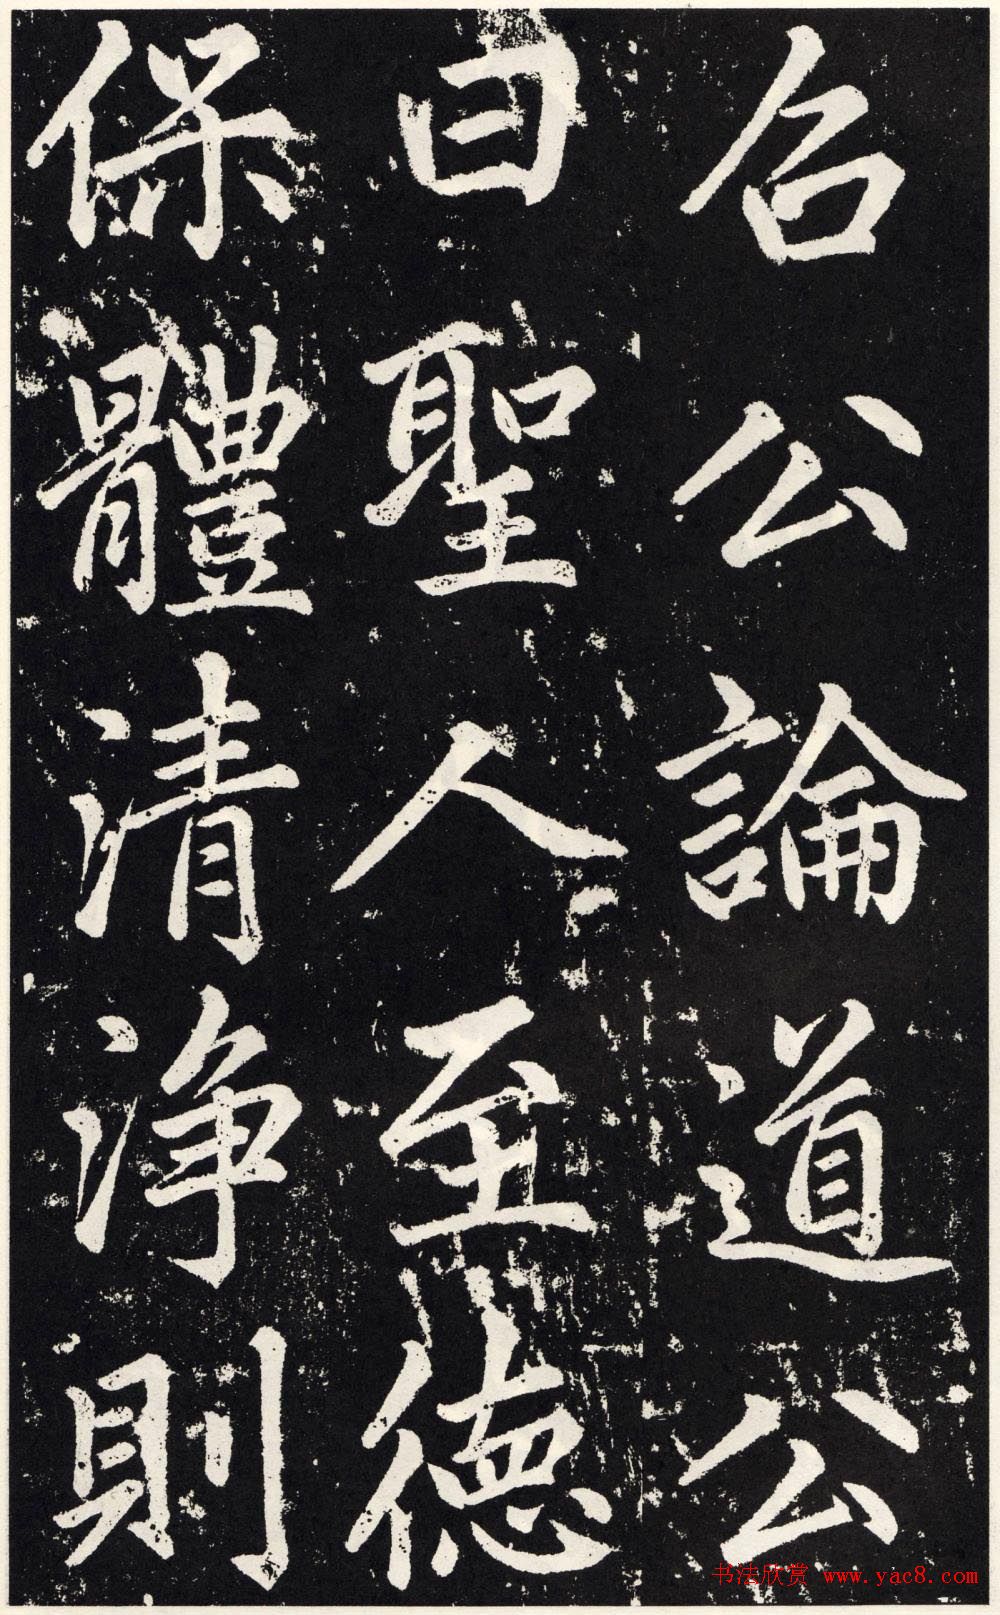 召公論道公
曰聖人至德
保體清浄則
书法欣赏 www.yac8.com